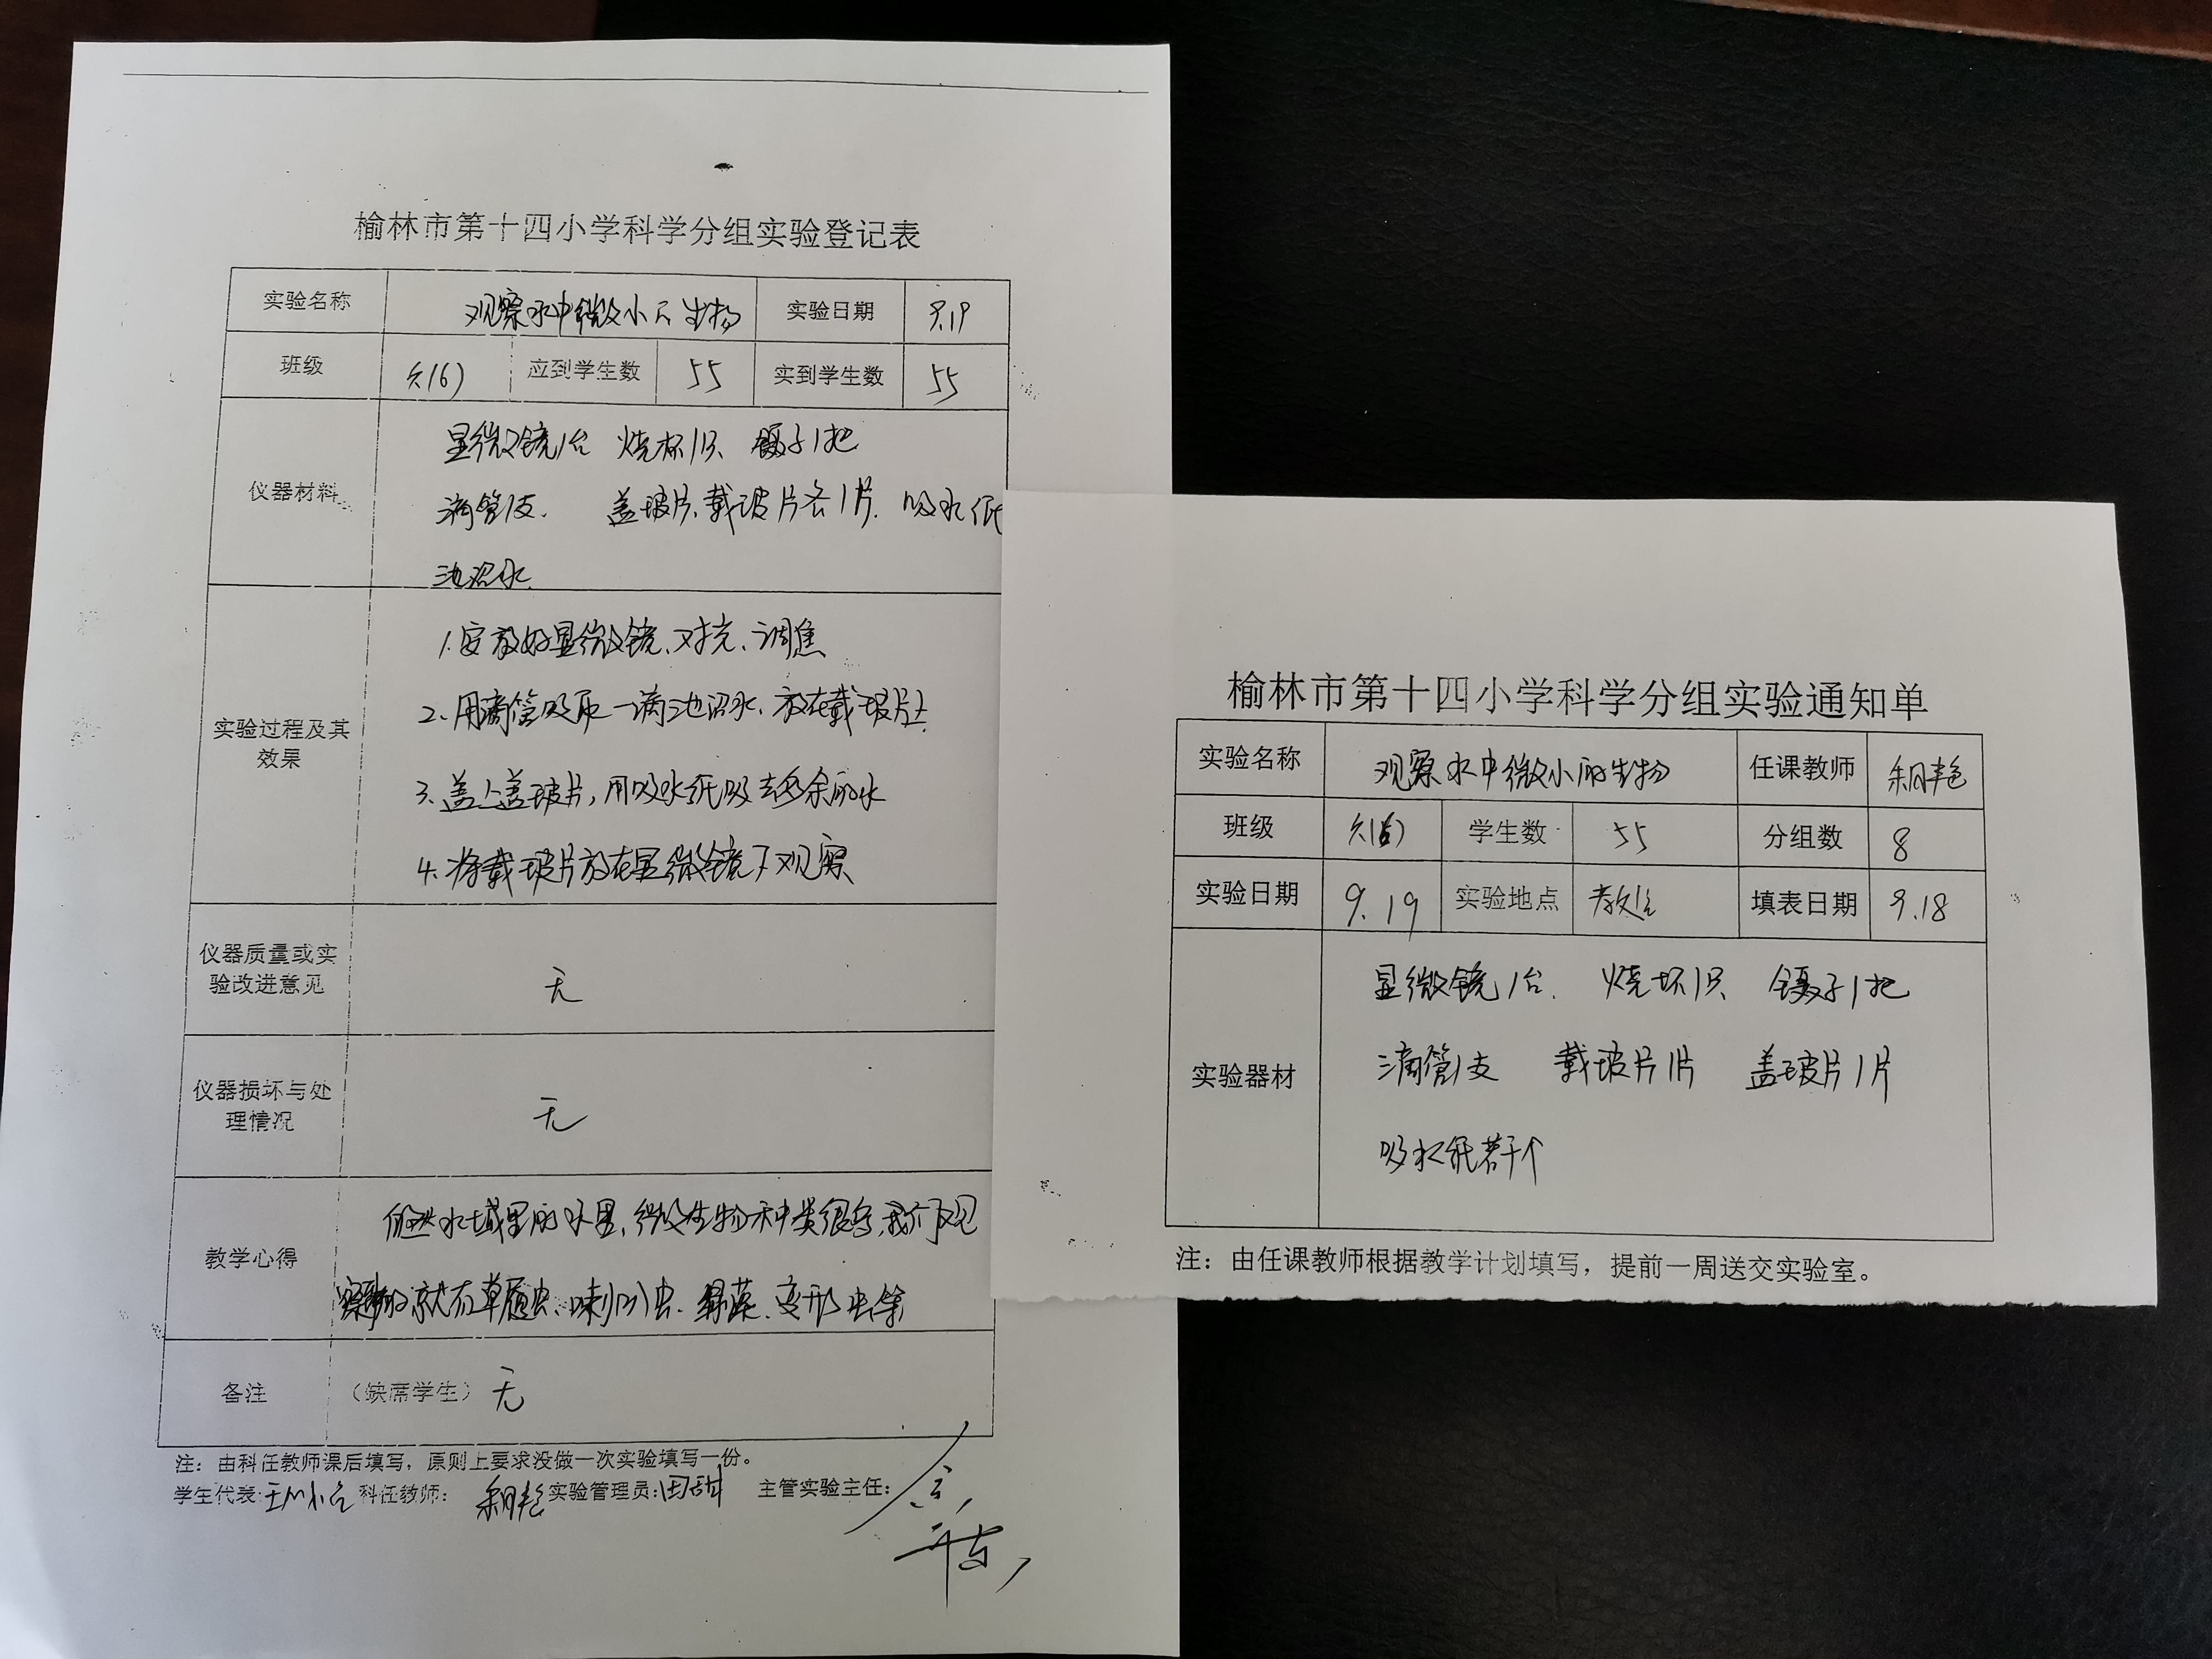 榆林市第十四小学科学分组实验登记表
实验名称 观察水中微小的生物 实验日期 9.19
班级 六(6) 应到学生数 55 实到学生数 55
仪器材料
显微镜1台 烧杯1只、镊子1把
滴管1支. 盖玻片、载玻片各1片. 吸水纸
池沼水
实验过程及其效果
1.安放好显微镜、对光、调焦
2.用滴管吸取一滴池沼水,放在载玻片上.
3.盖上盖玻片,用吸水纸吸去多余的水
4.将载玻片放在显微镜下观察
仪器质量或实验改进意见 无
仪器损坏与处理情况 无
教学心得
水域里的水里,微生物种类很多,我们观
察到的就有草履虫、喇叭虫、绿藻、变形虫等
备注 (缺席学生) 无
注：由科任教师课后填写，原则上要求没做一次实验填写一份。
学生代表: 科任教师: 实验管理员:田甜 主管实验主任:
榆林市第十四小学科学分组实验通知单
实验名称 观察水中微小的生物 任课教师
班级 六(6) 学生数 55 分组数 8
实验日期 9.19 实验地点 教室 填表日期 9.18
实验器材
显微镜1台. 烧杯1只、镊子1把
滴管1支 载玻片1片 盖玻片1片
吸水纸若干个
注：由任课教师根据教学计划填写，提前一周送交实验室。